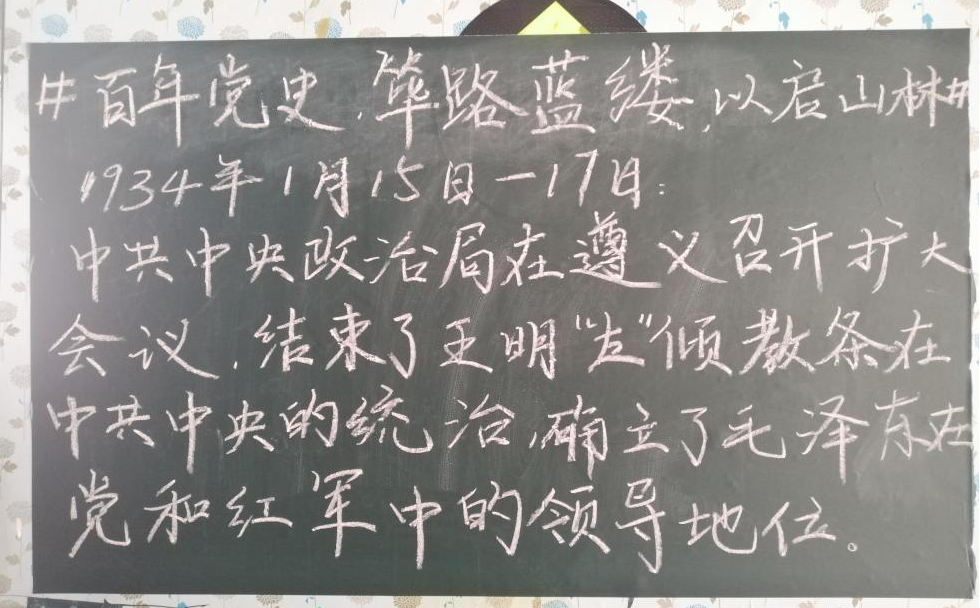 #百年党史,筚路蓝缕,以启山林#
1934年1月15日—17日:
中共中央政治局在遵义召开扩大
会议,结束了王明"左"倾教条在
中共中央的统治,确立了毛泽东在
党和红军中的领导地位。